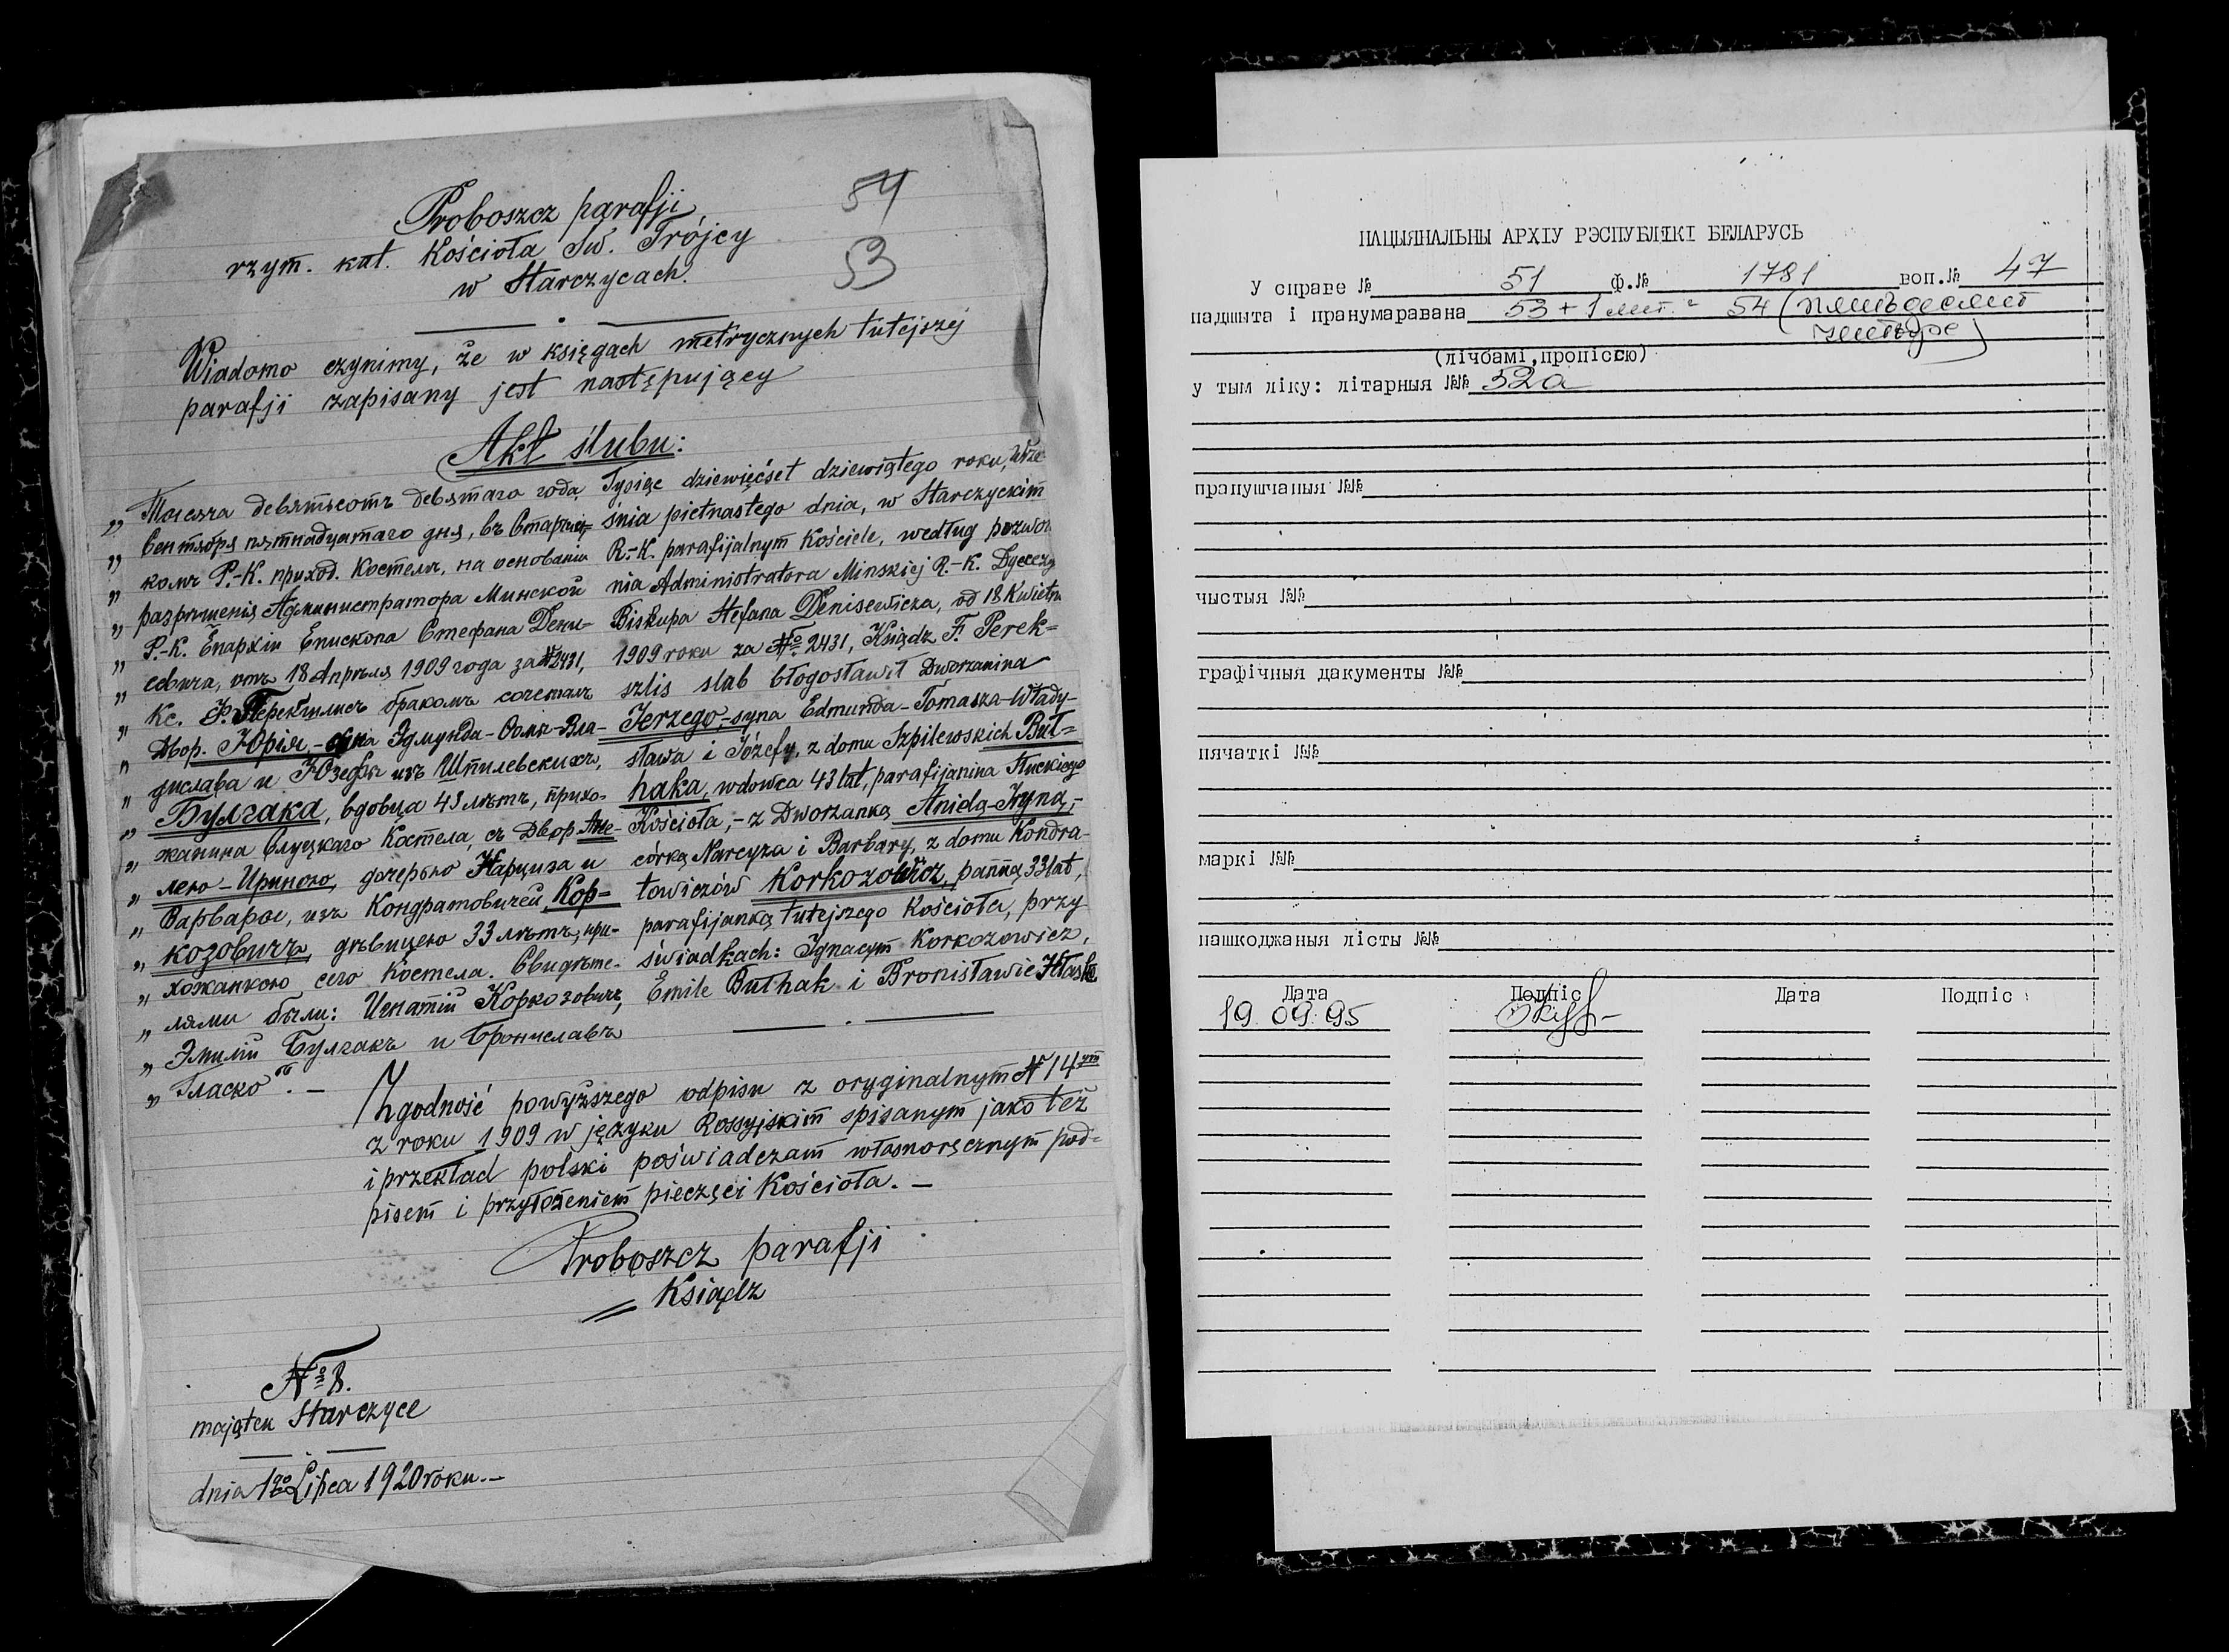 54
53
Proboszcz parafji
rzym. kat. Kościoła Św. Trójcy
w Starczycach.
Wiadomo czynimy, że w księgach metrycznych tutejszej
parafji zapisany jest następujący
Akt ślubu:
„ Тысяча девятьсотъ девятаго года
„ Сентября пятнадцатаго дня, въ Старчиц=
„ комъ Р.-К. приход. Костелѣ, на основаніи
„ разрѣшенія Администратора Минской
„ Р.-К. Епархіи Епископа Стефана Дени-
„ севича, отъ 18 Апрѣля 1909 года за № 2431,
„ Кс. Ф. Перекшлисъ бракомъ сочеталъ
„ Двор. Юрія,- сына Эдмунда-Ѳомы-Вла-
„ дислава и Юзефы изъ Шпилевскихъ,
„ Булгака, вдовца 43 лѣтъ, прихо-
„ жанина Слуцкаго Костела, съ Двор. Ане-
„ лею-Ириною, дочерью Нарциза и
„ Варвары, изъ Кондратовичей Кор=
„ козовичъ, дѣвицею 33 лѣтъ, при-
„ хожанкою сего Костела. Свидѣте-
„ лями были: Игнатій Коркозовичъ,
„ Эмилій Булгакъ и Брониславъ
„ Гласко“. –
Tysiąc dziewięćset dziewiątego roku, Wrze
śnia pietnastego dnia, w Starczyckim
R.-K. parafijalnym Kościele, według pozwole
nia Administratora Minskiej R.-K. Dyecezy
Biskupa Stefana Denisewicza, od 18 Kwietn
1909 roku za № 2431, Ksiądz F. Perek=
szlis slab błogosławił Dworzanina
Jerzego,-syna Edmunda-Tomasza-Włady-
sława i Józefy, z domu Szpilewskich Buł=
haka, wdowca 43 lat, parafijanina Słuckiego
Kościoła,- z Dworzanką Anielą-Iryną,-
córką Narcyza i Barbary, z domu Kondra-
towiczów Korkozowicz, panną 33 lat,
parafijanką tutejszego Kościoła, przy
świadkach: Ignacym Korkozowicz,
Emile Bułhak i Bronisławie Hłasko
Zgodność powyższego odpisu z oryginalnym № 14ym
z roku 1909 w języku Rossyjskim spisanym jako też
i przekład polski poświadczam własnoręcznym pod=
pisem i przyłożeniem pieczęci Kościoła. –
Proboszcz parafji
Ksiądz
№ 8.
majątek Starczyce
dnia 1go Lipca 1920 roku. –
НАЦЫЯНАЛЬНЫ АРХІУ РЭСПУБЛІКІ БЕЛАРУСЬ
У справе № 51 ф.№ 1781 воп.№ 47
падшыта і пранумаравана 53 + 1 лит. = 54 (пяцьдесят
чатыры)
(лічбамі, пропіссю)
у тым ліку: літарныя №№ 52а
прапушчаныя №№
чыстыя №№
графічныя дакументы №№
пячаткі №№
маркі №№
пашкоджаныя лісты №№
Дата Подпіс Дата Подпіс
19.09.95